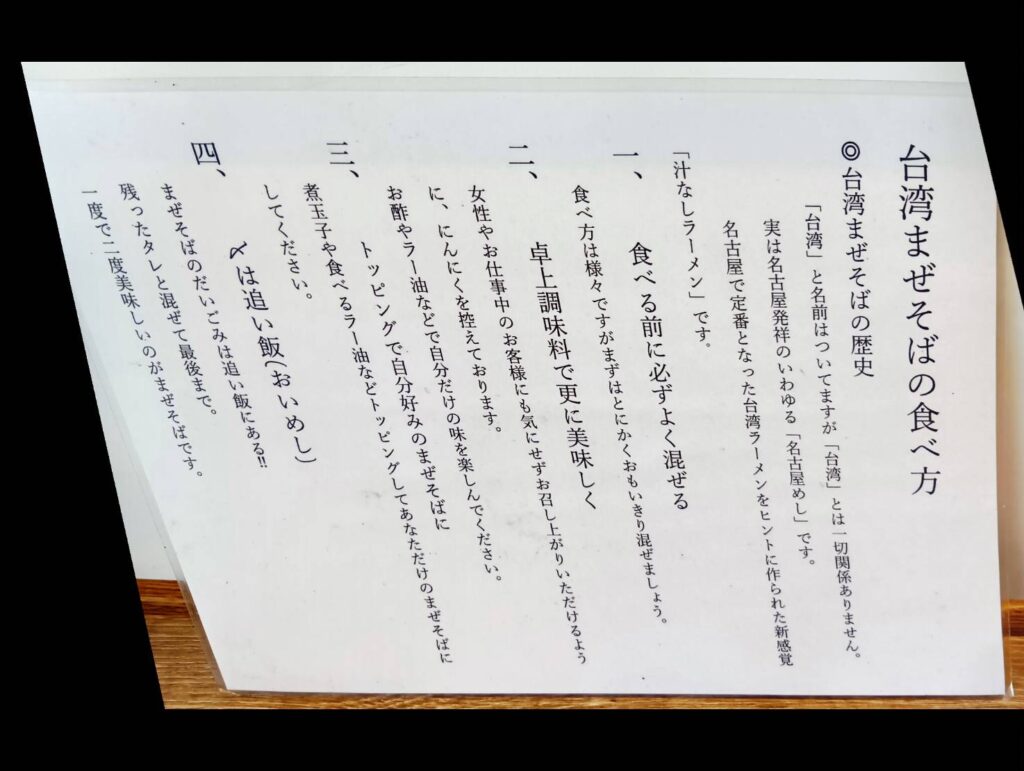 台湾まぜそばの食べ方
◎台湾まぜそばの歴史
「台湾」と名前はついてますが「台湾」とは一切関係ありません。
実は名古屋発祥のいわゆる「名古屋めし」です。
名古屋で定番となった台湾ラーメンをヒントに作られた新感覚
「汁なしラーメン」です。
一、 食べる前に必ずよく混ぜる
食べ方は様々ですがまずはとにかくおもいきり混ぜましょう。
二、 卓上調味料で更に美味しく
女性やお仕事中のお客様にも気にせずお召し上がりいただけるよう
に、にんにくを控えております。
お酢やラー油などで自分だけの味を楽しんでください。
三、 トッピングで自分好みのまぜそばに
煮玉子や食べるラー油などトッピングしてあなただけのまぜそばに
してください。
四、 〆は追い飯(おいめし)
まぜそばのだいごみは追い飯にある!!
残ったタレと混ぜて最後まで。
一度で二度美味しいのがまぜそばです。